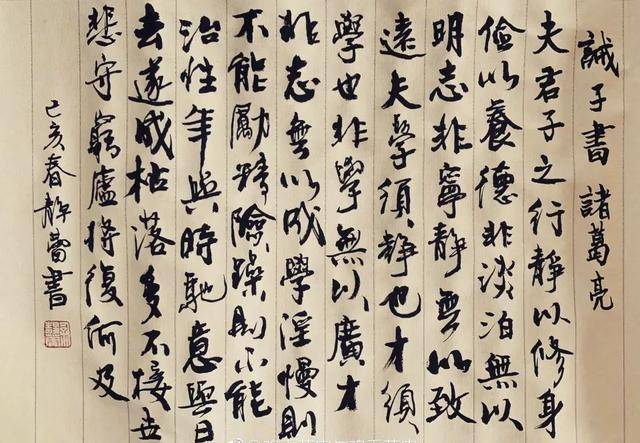 誡子書 諸葛亮
夫君子之行靜以修身
儉以養德非淡泊無以
明志非寧靜無以致
遠夫學須靜也才須
學也非學無以廣才
非志無以成學淫慢則
不能勵精險躁則不能
治性年與時馳意與日
去遂成枯落多不接世
悲守窮廬將復何及
己亥春靜書